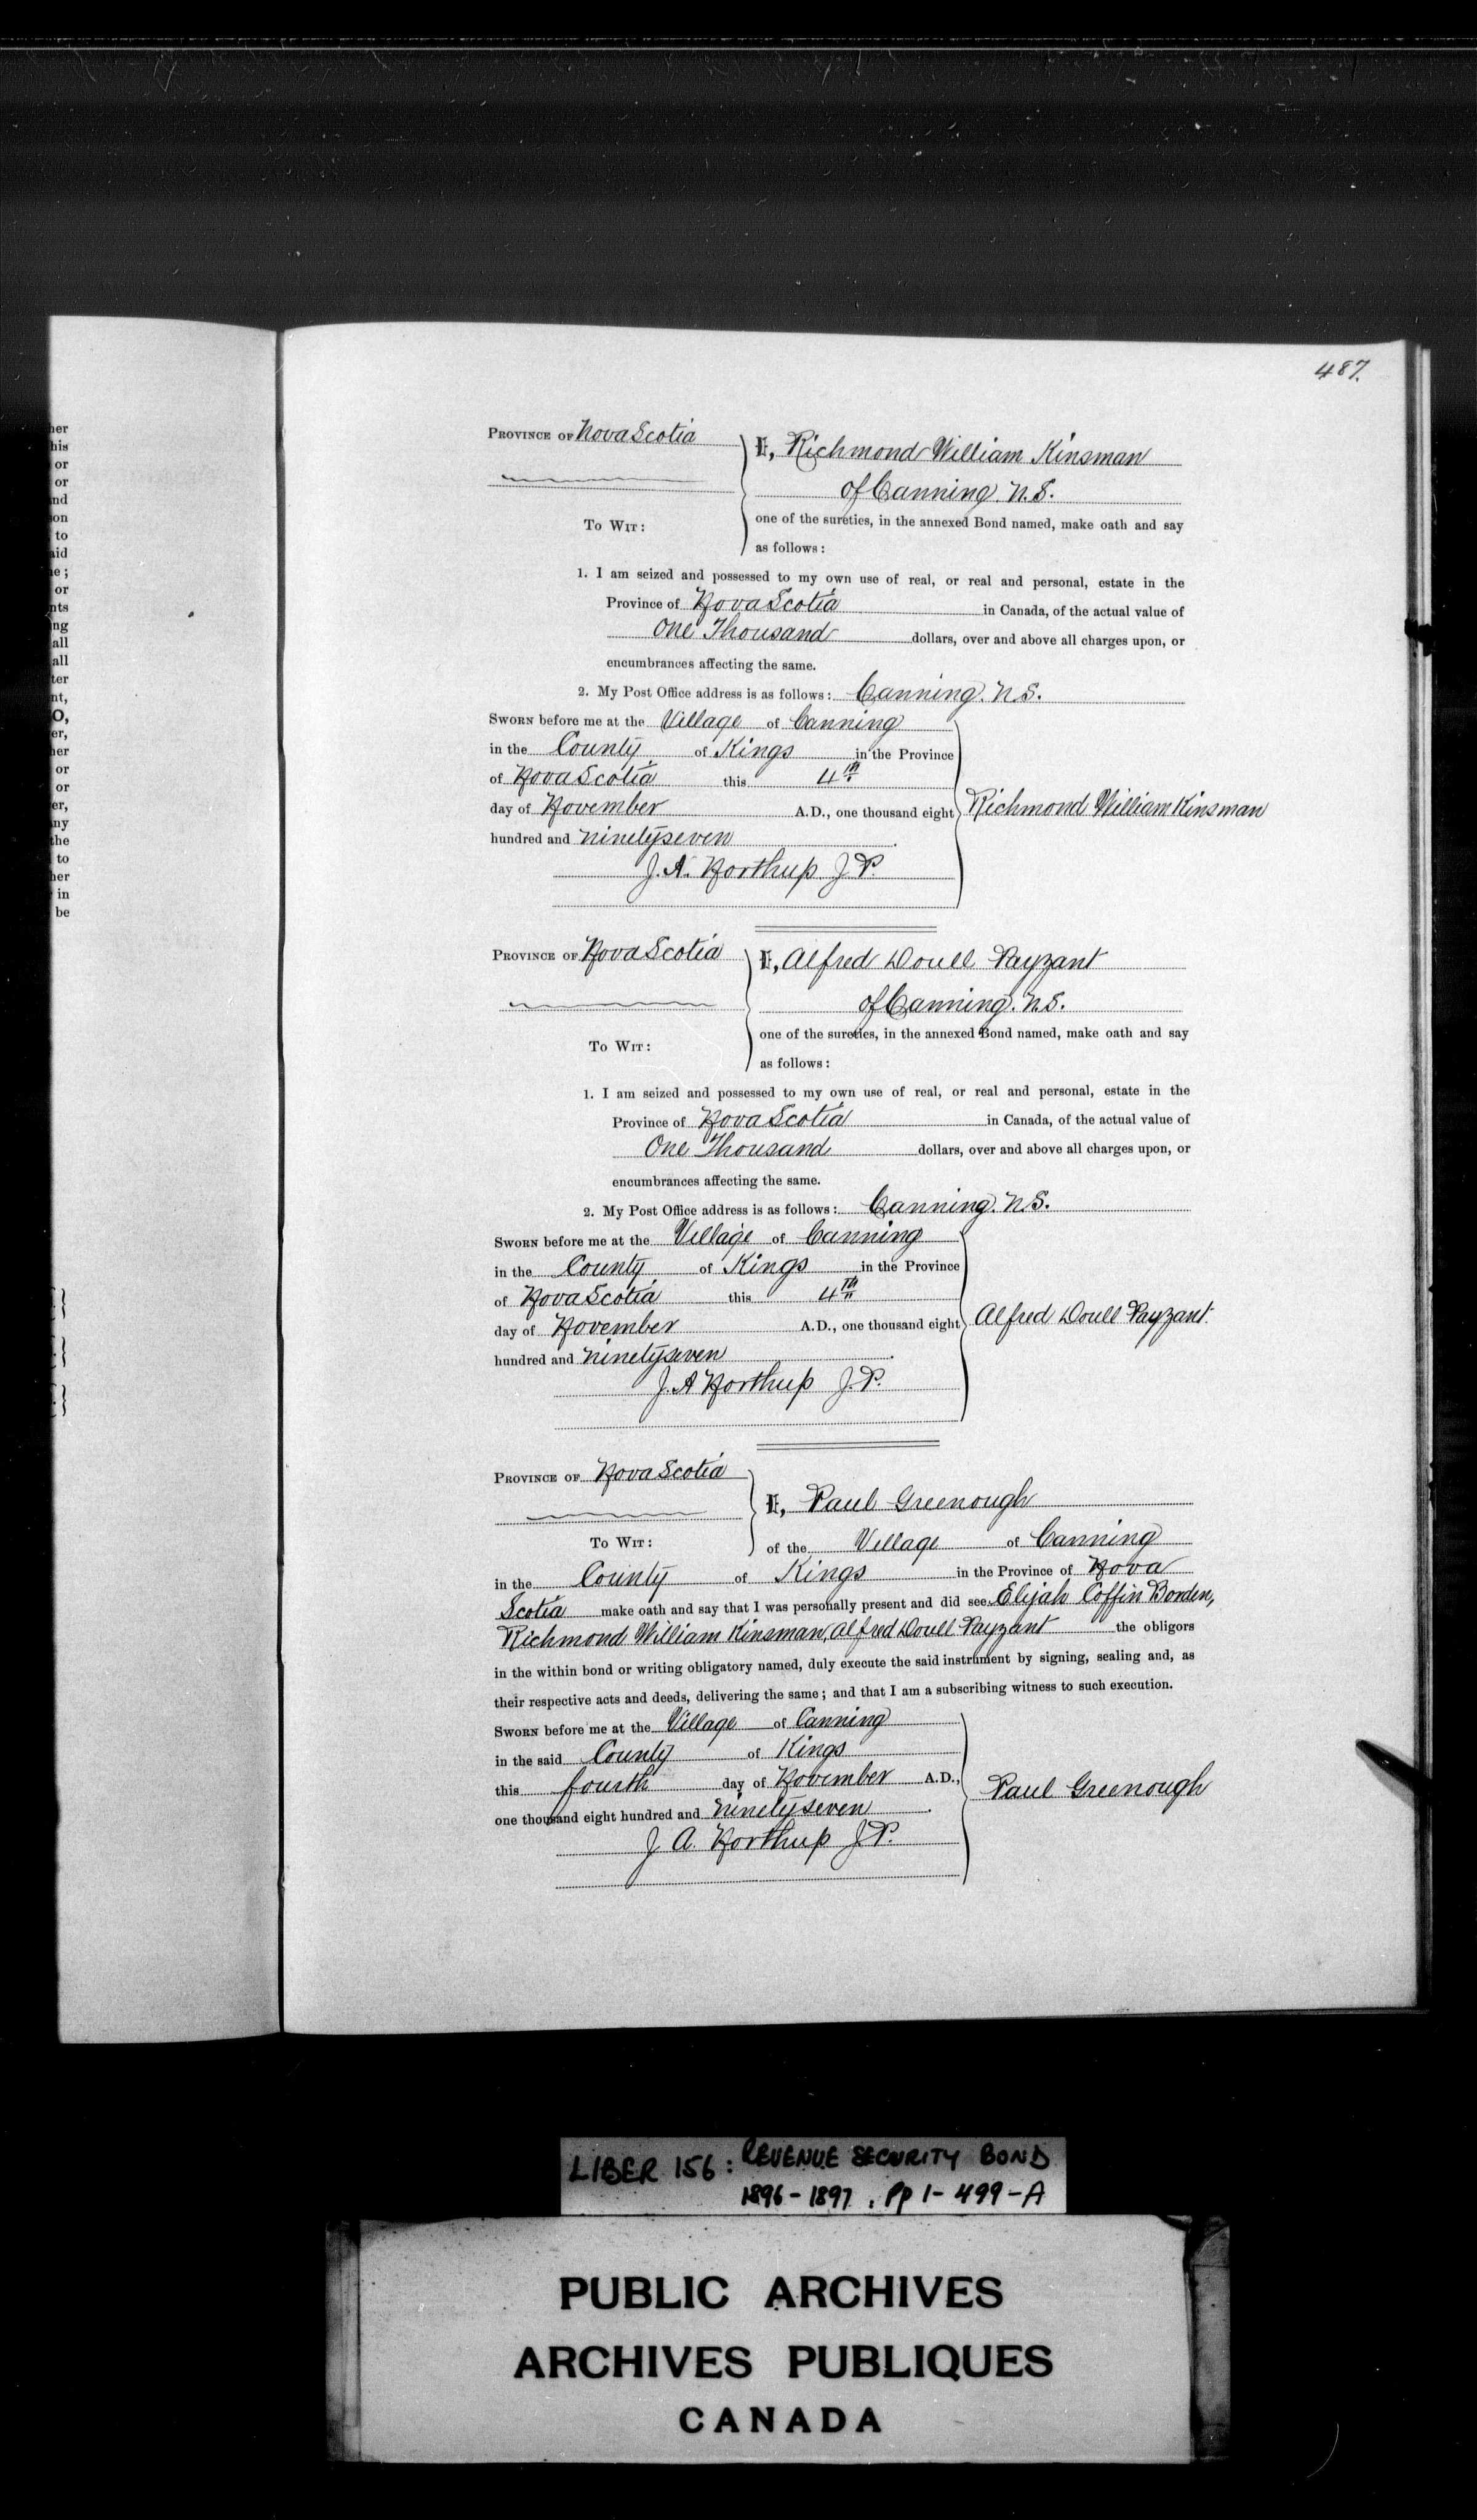 487.
her
his
or
or
nd
on
to
aid
e;
or
nts
ng
all
all
ter
nt,
O,
er,
her
or
or
er,
ny
the
to
her
in
be
PROVINCE OF Nova Scotia
I, Richmond William Kinsman
of Canning. N.S.
TO WIT:
one of the sureties, in the annexed Bond named, make oath and say
as follows:
1. I am seized and possessed to my own use of real, or real and personal, estate in the
Province of Nova Scotia in Canada, of the actual value of
One Thousand dollars, over and above all charges upon, or
encumbrances affecting the same.
2. My Post Office address is as follows: Canning. N.S.
SWORN before me at the Village of Canning
in the County of Kings in the Province
of Nova Scotia this 4th
day of November A.D., one thousand eight
hundred and ninetyseven
Richmond William Kinsman
J. A. Northup J.P.
PROVINCE OF Nova Scotia
I, Alfred Doull Payzant
of Canning. N.S.
TO WIT:
one of the sureties, in the annexed Bond named, make oath and say
as follows:
1. I am seized and possessed to my own use of real, or real and personal, estate in the
Province of Nova Scotia in Canada, of the actual value of
One Thousand dollars, over and above all charges upon, or
encumbrances affecting the same.
2. My Post Office address is as follows: Canning. N.S.
SWORN before me at the Village of Canning
in the County of Kings in the Province
of Nova Scotia this 4th
day of November A.D., one thousand eight
hundred and ninetyseven
Alfred Doull Payzant.
J. A Northup J.P.
PROVINCE OF Nova Scotia
I, Paul Greenough
TO WIT:
of the Village of Canning
in the County of Kings in the Province of Nova
Scotia make oath and say that I was personally present and did see Elijah Coffin Borden,
Richmond William Kinsman, Alfred Doull Payzant the obligors
in the within bond or writing obligatory named, duly execute the said instrument by signing, sealing and, as
their respective acts and deeds, delivering the same; and that I am a subscribing witness to such execution.
SWORN before me at the Village of Canning
in the said County of Kings
this fourth day of November A.D.,
one thousand eight hundred and ninetyseven
Paul Greenough
J A. Northup J.P.
LIBER 156: REVENUE SECURITY BOND
1896-1897, Pp 1-499-A
PUBLIC ARCHIVES
ARCHIVES PUBLIQUES
CANADA